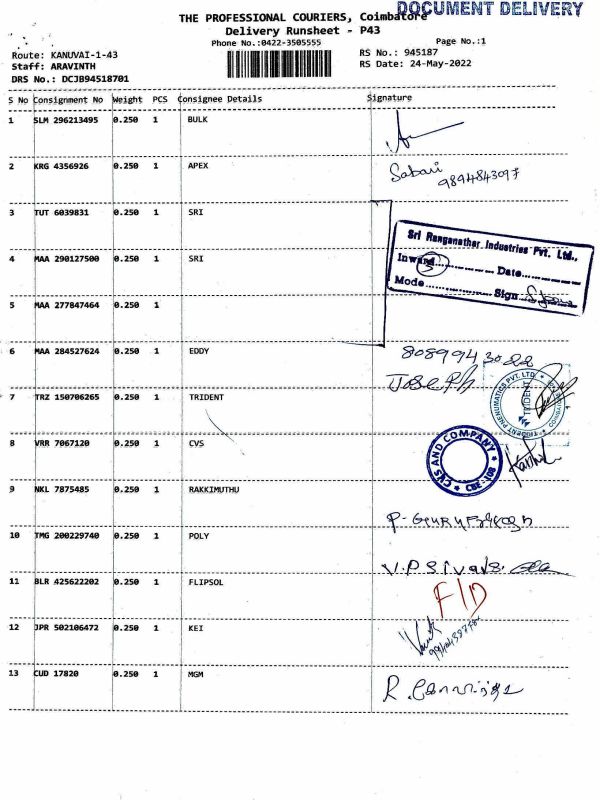 DOCUMENT DELIVERY
THE PROFESSIONAL COURIERS, Coimbatore
Delivery Runsheet - P43
Phone No.:0422-3505555
Page No.:1
Route: KANUVAI-1-43
RS No.: 945187
Staff: ARAVINTH
RS Date: 24-May-2022
DRS No.: DCJB94518701
S No Consignment No Weight PCS Consignee Details Signature
1 SLM 296213495 0.250 1 BULK
2 KRG 4356926 0.250 1 APEX Sabari
9894843097
3 TUT 6039831 0.250 1 SRI
Sri Ranganathar Industries Pvt. Ltd.,
4 MAA 290127500 0.250 1 SRI
Inward 3 Date
Mode Sign
5 MAA 277847464 0.250 1
6 MAA 284527624 0.250 1 EDDY 8089943022
JOSEPh
7 TRZ 150706265 0.250 1 TRIDENT
TRIDENT PNEUMATICS PVT. LTD
TRIDENT
8 VRR 7067120 0.250 1 CVS
CVS AND COMPANY
CBE-108
9 NKL 7875485 0.250 1 RAKKIMUTHU
10 TMG 200229740 0.250 1 POLY
11 BLR 425622202 0.250 1 FLIPSOL F/D
12 JPR 502106472 0.250 1 KEI
13 CUD 17820 0.250 1 MGM